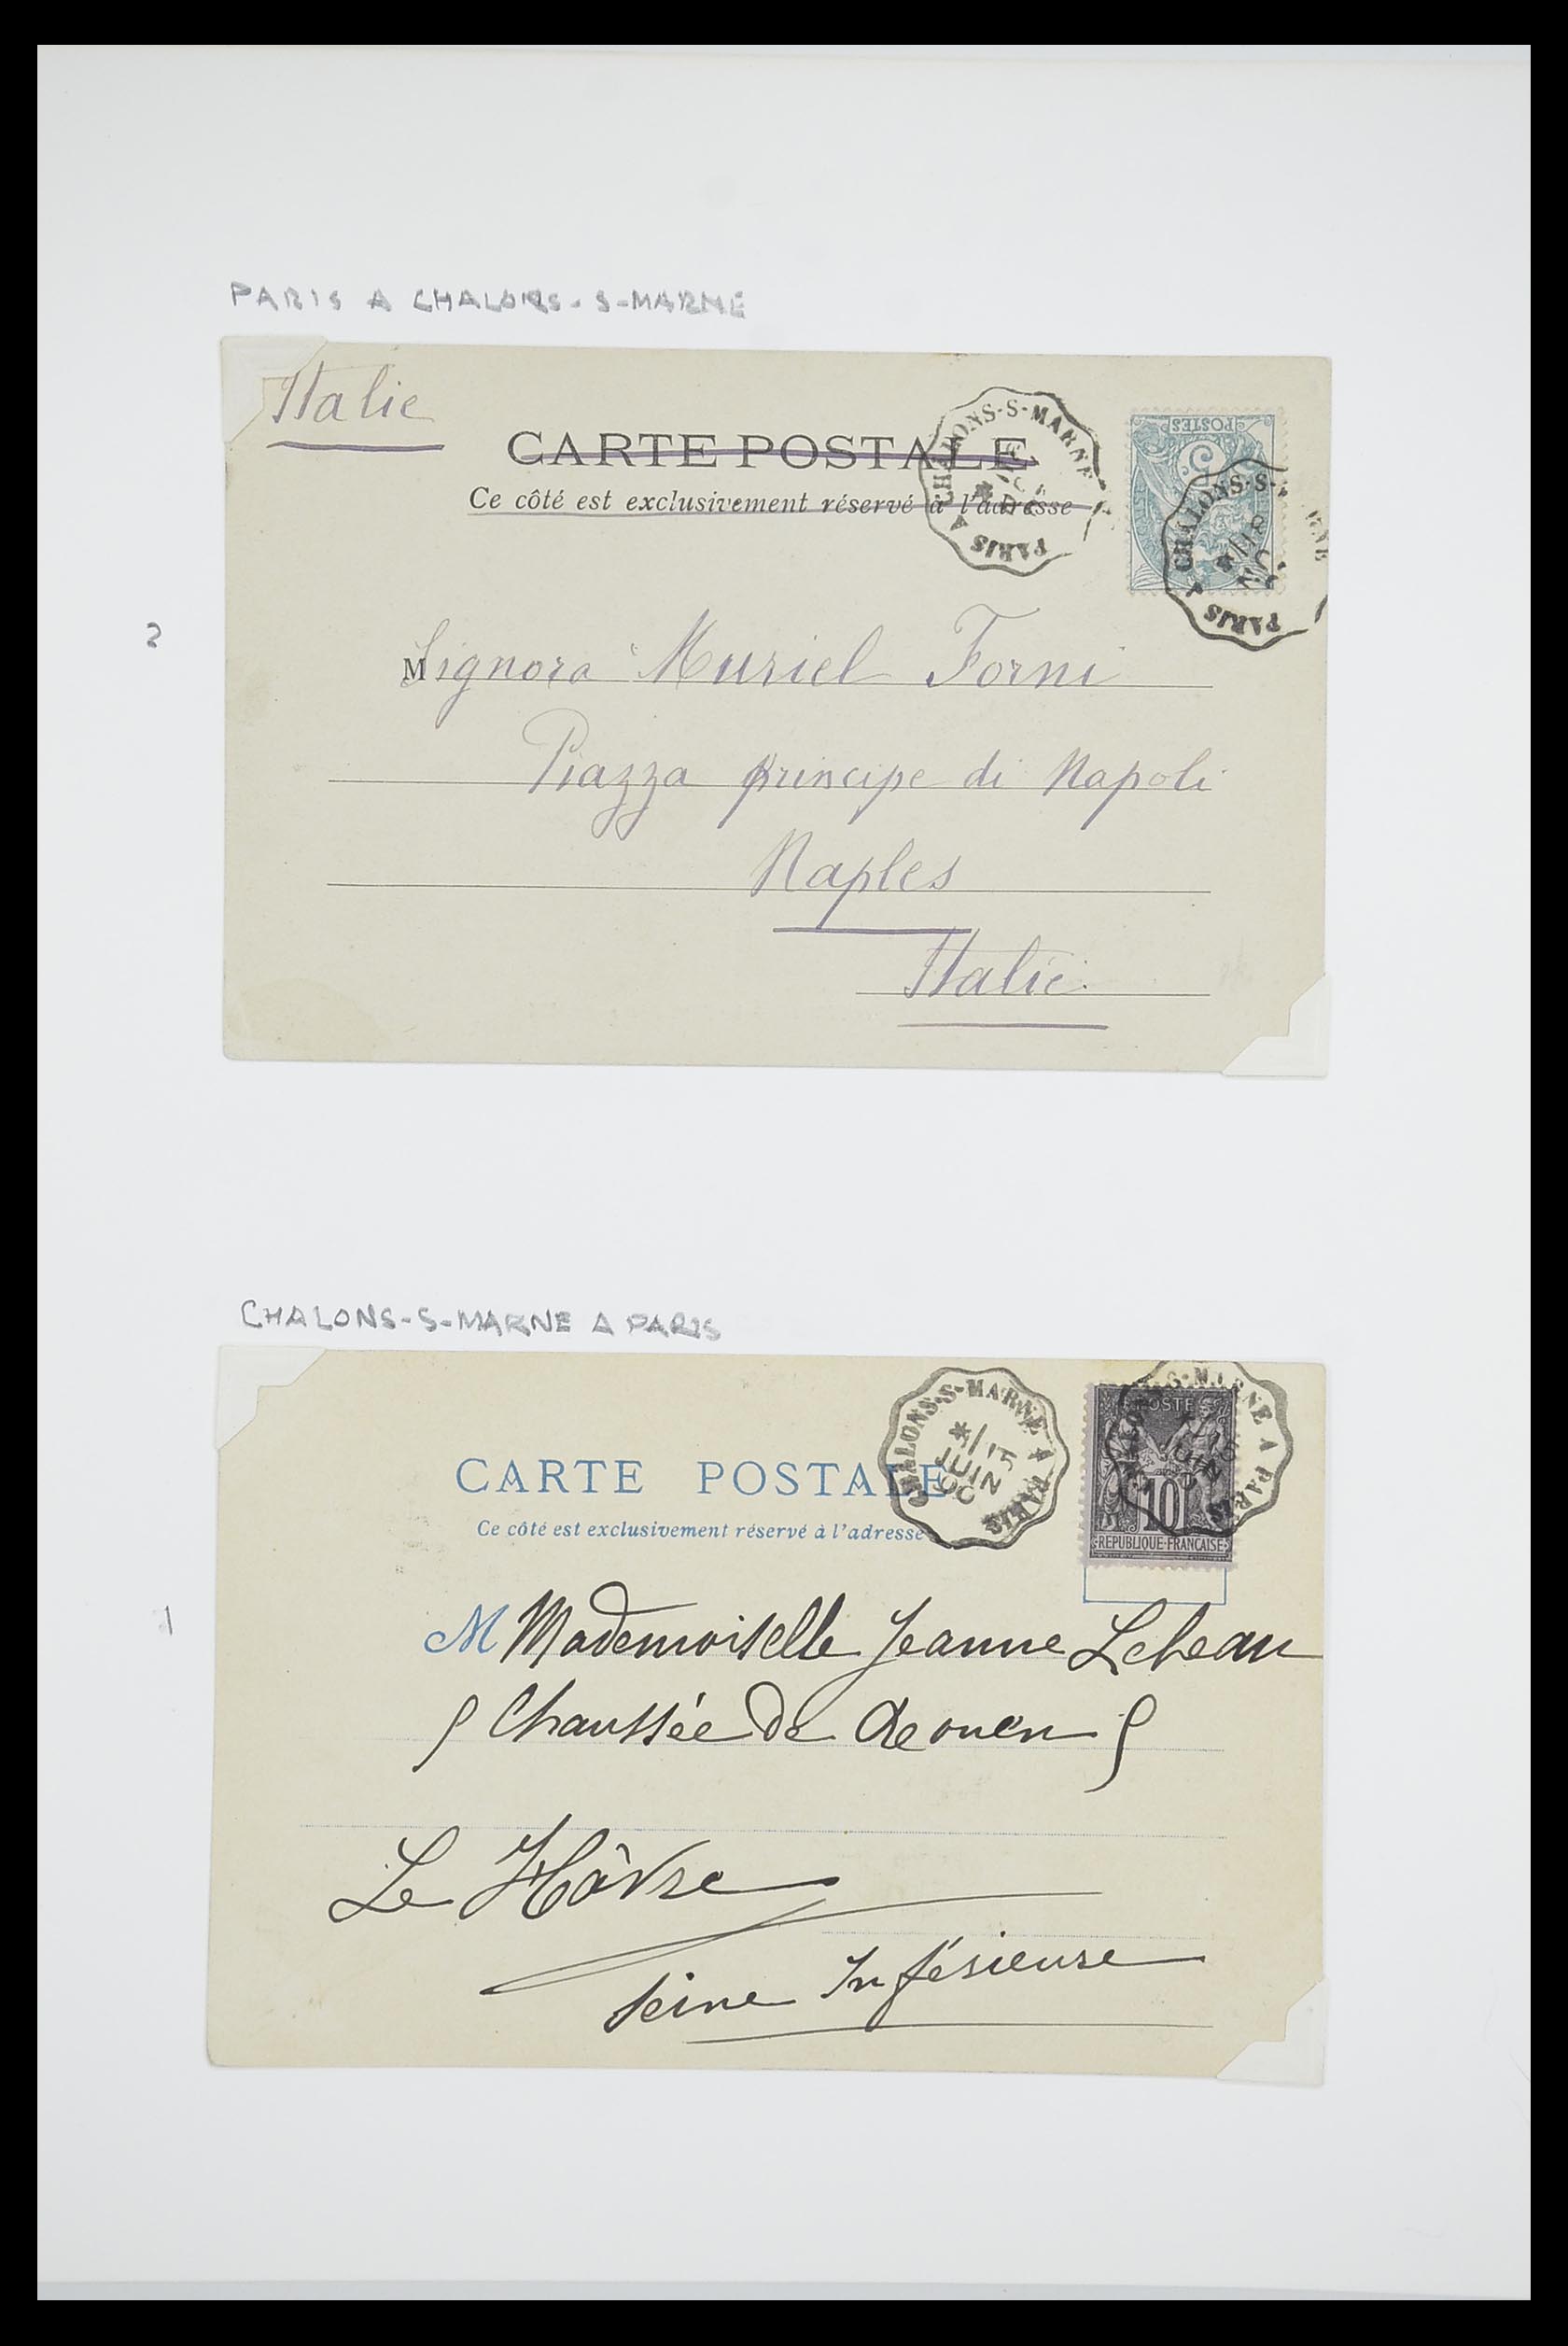 PARIS A CHALONS-S-MARNE
Italie
CARTE POSTALE
Ce côté est exclusivement réservé à l'adresse
CHALONS-S-MARNE
PARIS A
POSTES
5
CHALONS-S-
PARIS A
2
M Signora Muriel Forni
Piazza principe di Napoli
Naples
Italie.
CHALONS-S-MARNE A PARIS
CHALONS-S-MARNE A PARIS
JUIN
00
POSTE
10
REPUBLIQUE FRANÇAISE
JUIN
CARTE POSTALE
Ce côté est exclusivement réservé à l'adresse
1
M Mademoiselle Jeanne
5 Chaussée de Rouen 5
Le Hâvre
Seine Inférieure